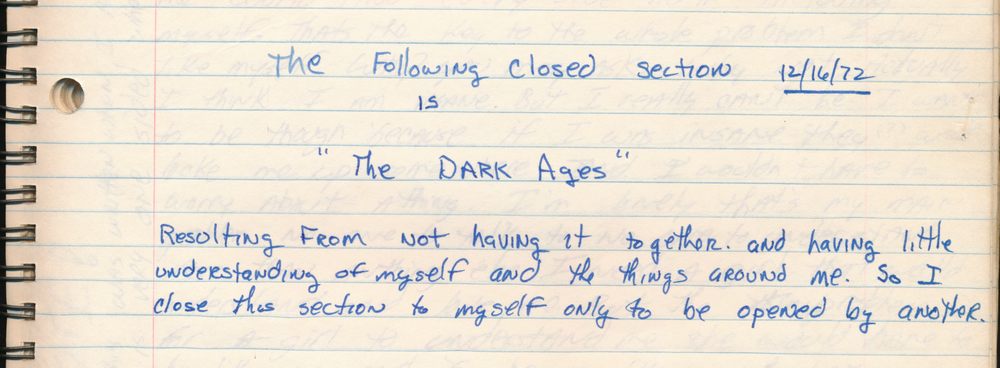 The Following closed section 12/16/72
is
"The DARK Ages"
Resolting From not having it together. and having little
understanding of myself and the things around me. So I
close this section to myself only to be opened by another.